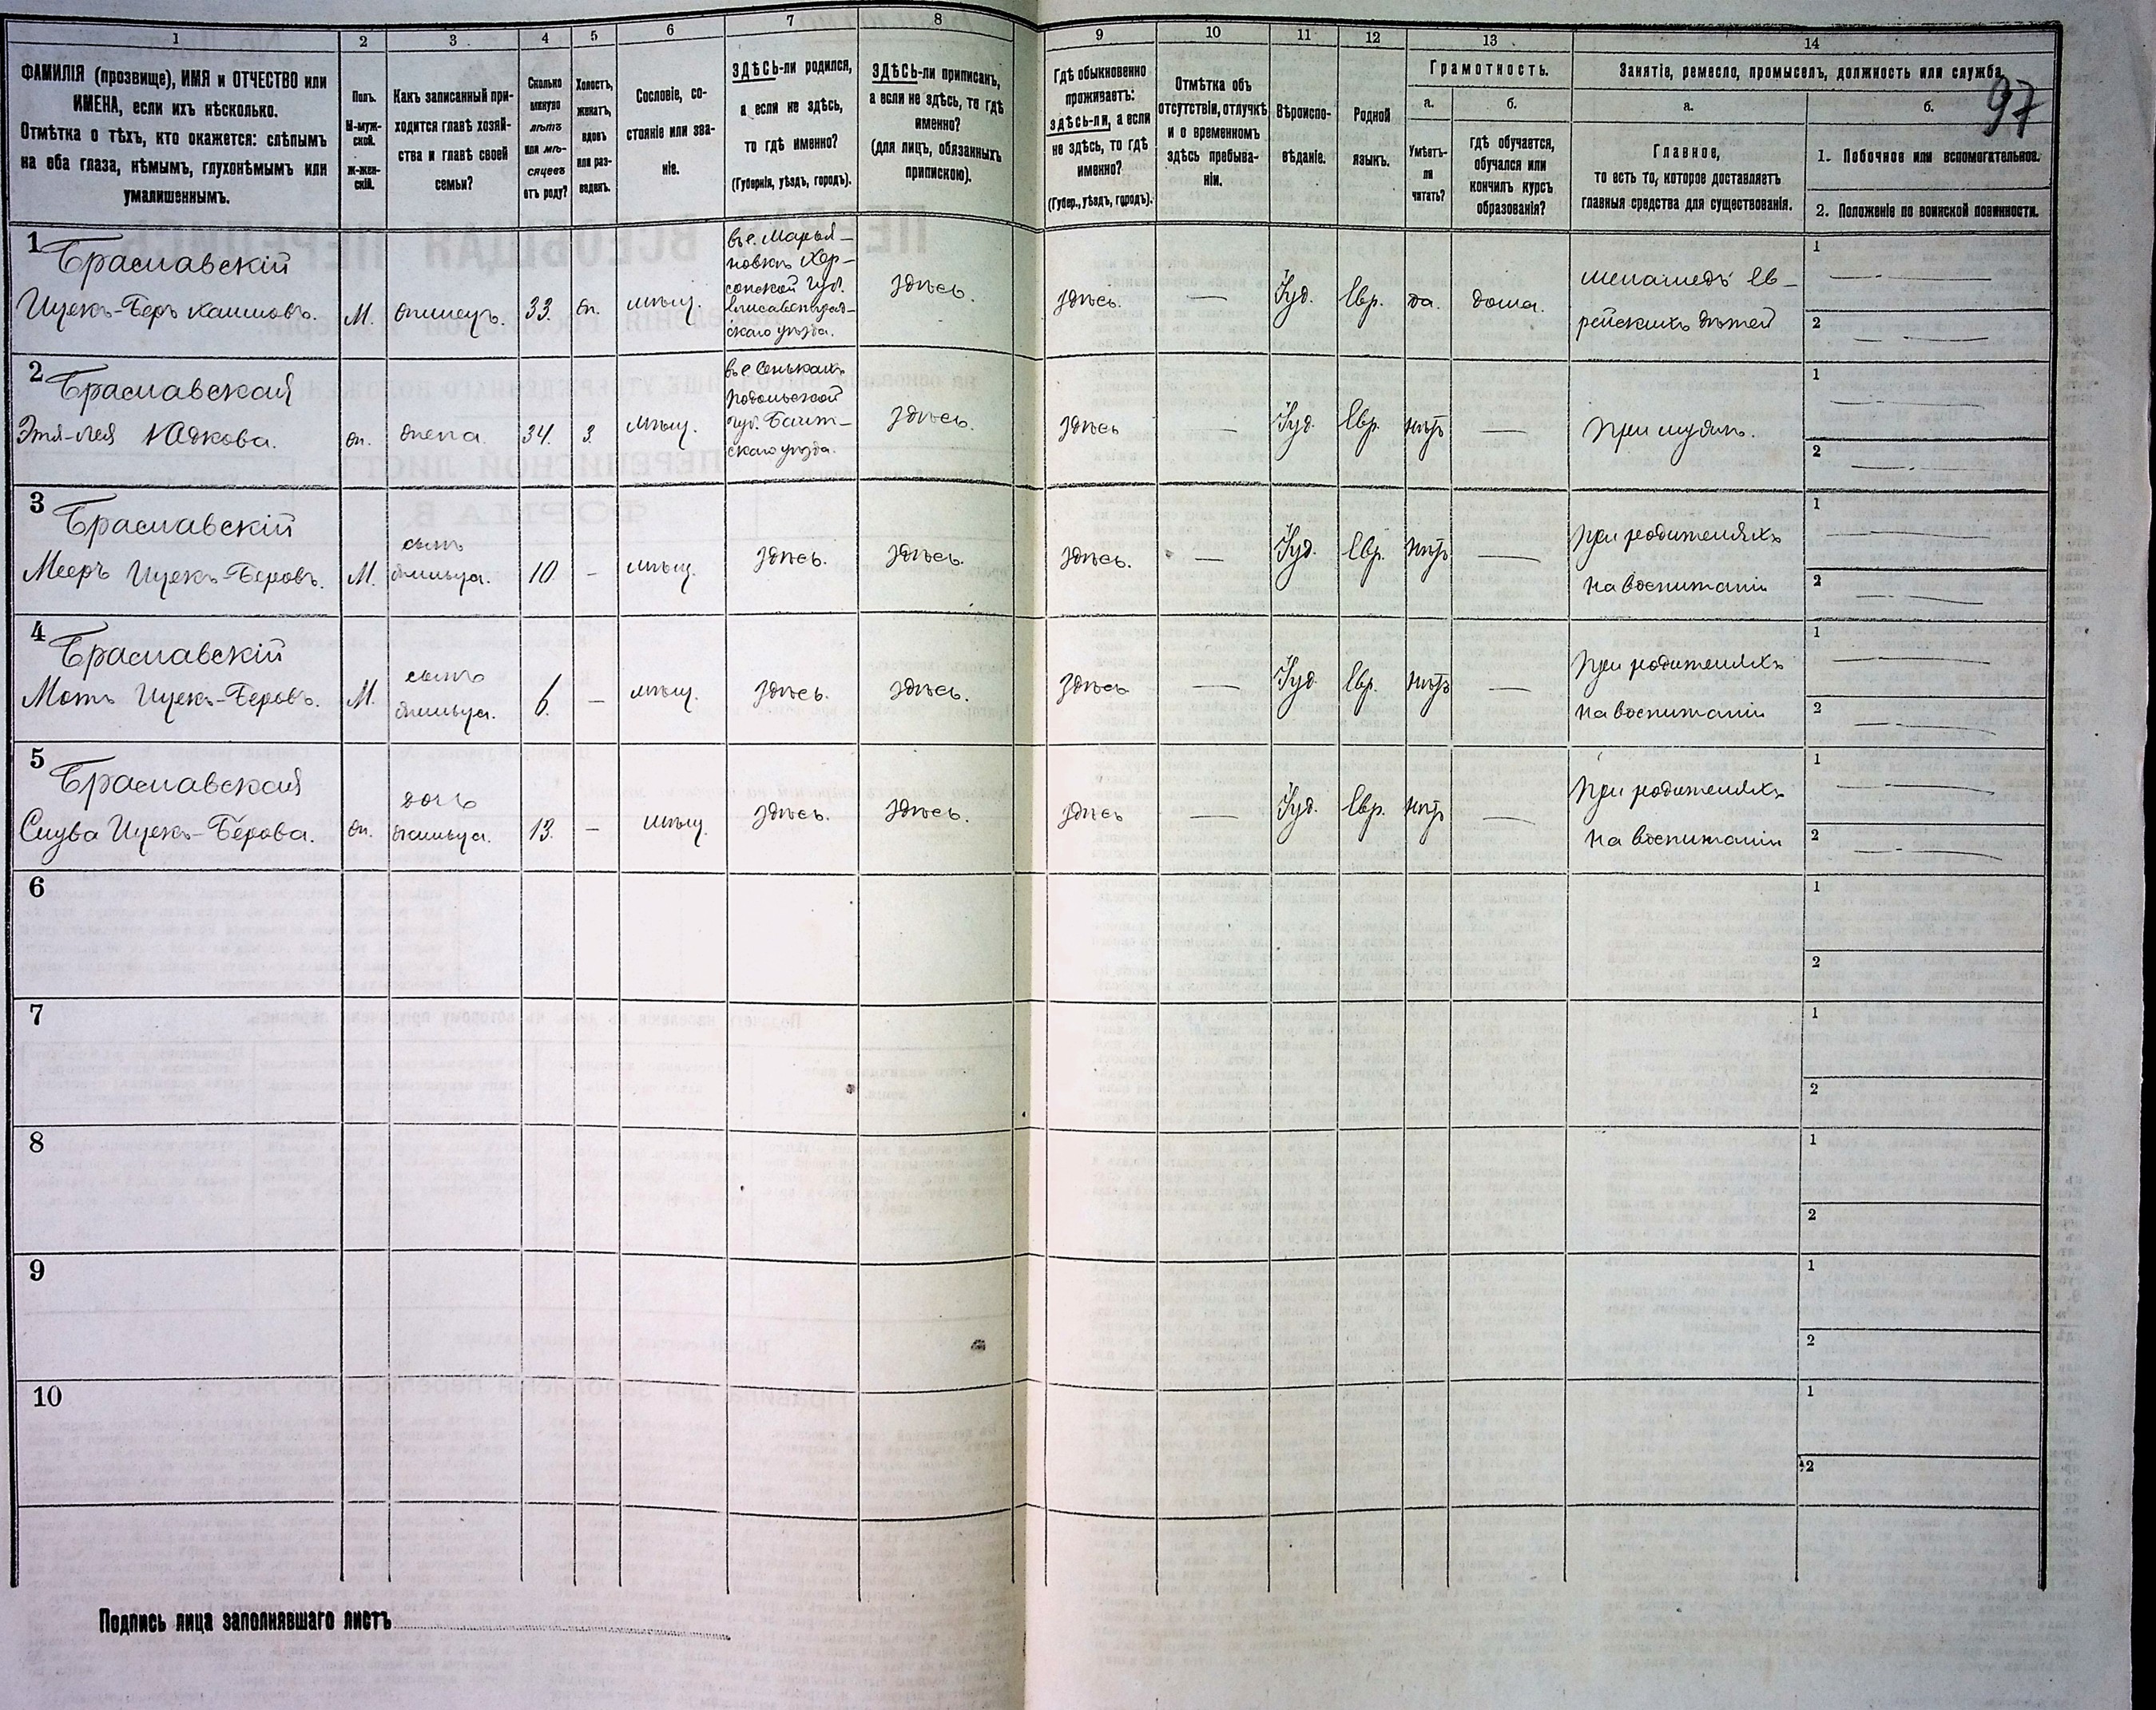 1
2
3
4
5
6
7
8
9
10
11
12
13
14
ФАМИЛІЯ (прозвище), ИМЯ и ОТЧЕСТВО или
ИМЕНА, если ихъ нѣсколько.
Отмѣтка о тѣхъ, кто окажется: слѣпымъ
на оба глаза, нѣмымъ, глухонѣмымъ или
умалишеннымъ.
Полъ.
М-муж-
ской.
Ж-жен-
скій.
Какъ записанный при-
ходится главѣ хозяй-
ства и главѣ своей
семьи?
Сколько
минуло
лѣтъ
или мѣ-
сяцевъ
отъ роду?
Холостъ,
женатъ,
вдовъ
или раз-
веденъ.
Сословіе, со-
стояніе или зва-
ніе.
ЗДѢСЬ-ли родился,
а если не здѣсь,
то гдѣ именно?
(Губернія, уѣздъ, городъ).
ЗДѢСЬ-ли приписанъ,
а если не здѣсь, то гдѣ
именно?
(для лицъ, обязанныхъ
припискою).
Гдѣ обыкновенно
проживаетъ:
здѣсь-ли, а если
не здѣсь, то гдѣ
именно?
(Губер., уѣздъ, городъ).
Отмѣтка объ
отсутствіи, отлучкѣ
и о временномъ
здѣсь пребыва-
ніи.
Вѣроиспо-
вѣданіе.
Родной
языкъ.
Грамотность.
а.
б.
Умѣетъ-
ли
читать?
гдѣ обучается,
обучался или
кончилъ курсъ
образованія?
Занятіе, ремесло, промыселъ, должность или служба.
97
а.
б.
Главное,
то есть то, которое доставляетъ
главныя средства для существованія.
1. Побочное или вспомогательное.
2. Положеніе по воинской повинности.
1
Браславскій
Ицекъ-Беръ
М.
33.
мѣщ.
въ с. Марья-
новкѣ Хер-
сонской губ.
Елисаветград-
скаго уѣзда.
здѣсь.
здѣсь.
—
Іуд.
Евр.
да.
дома.
меламедъ ев-
рейскихъ дѣтей
1
2
2
Браславская
Этя-Лея Юдкова.
ж.
жена.
34.
З.
мѣщ.
въ с. Сенькахъ
Подольской
губ. Балт-
скаго уѣзда.
здѣсь.
здѣсь
—
Іуд.
Евр.
нѣтъ
—
при мужѣ.
1
2
3
Браславскій
Мееръ Ицекъ-Беровъ.
М.
сынъ
10.
-
мѣщ.
здѣсь.
здѣсь.
здѣсь.
—
Іуд.
Евр.
нѣтъ
—
при родителяхъ
на воспитаніи
1
2
4
Браславскій
Моть Ицекъ-Беровъ.
М.
сынъ
6.
—
мѣщ.
здѣсь.
здѣсь.
здѣсь
—
Іуд.
Евр.
нѣтъ
—
при родителяхъ
на воспитаніи
1
2
5
Браславская
Слува Ицекъ-Берова.
ж.
дочь
13.
—
мѣщ.
здѣсь.
здѣсь.
здѣсь
—
Іуд.
Евр.
нѣтъ
—
при родителяхъ
на воспитаніи
1
2
6
1
2
7
1
2
8
1
2
9
1
2
10
1
2
Подпись лица заполнявшаго листъ